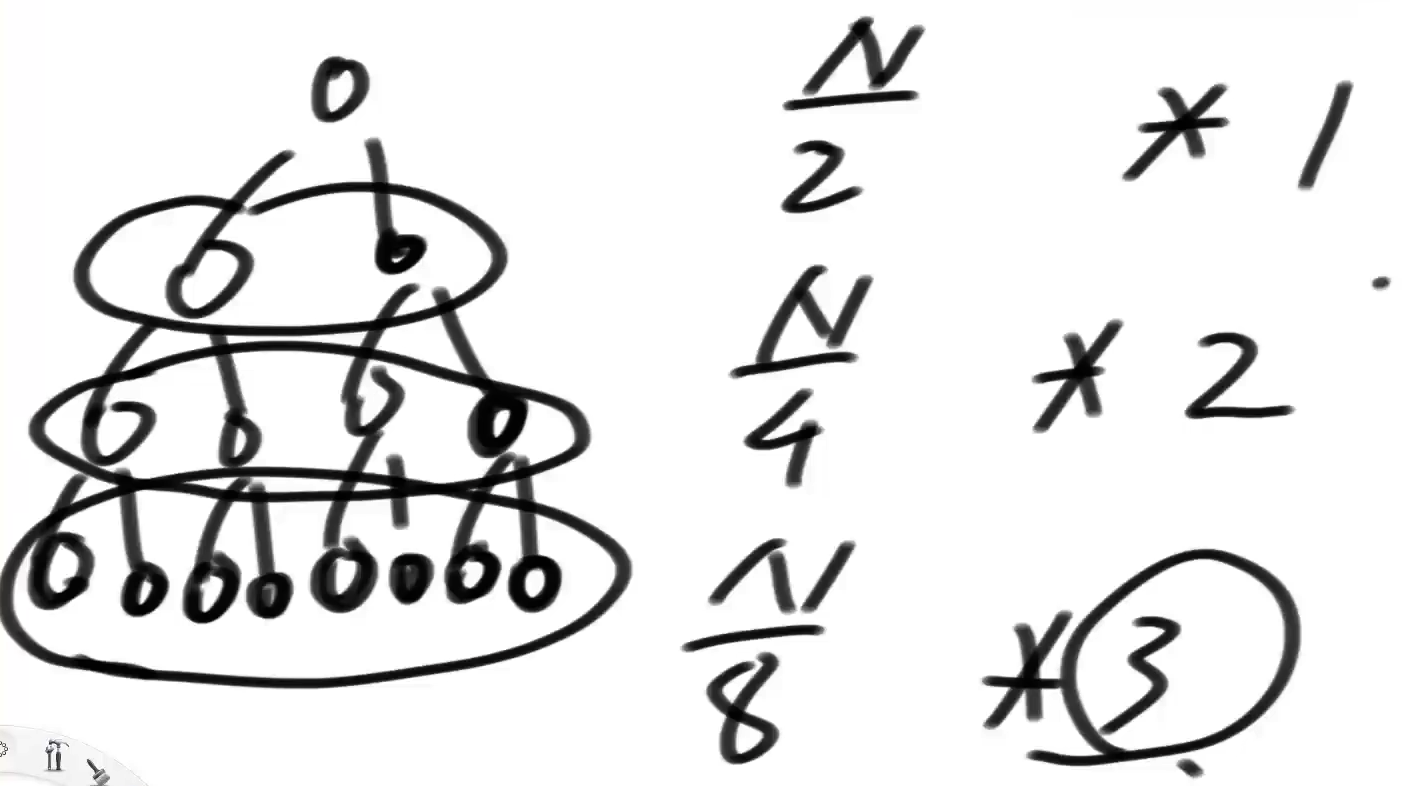 N/2 * 1
N/4 * 2
N/8 * 3